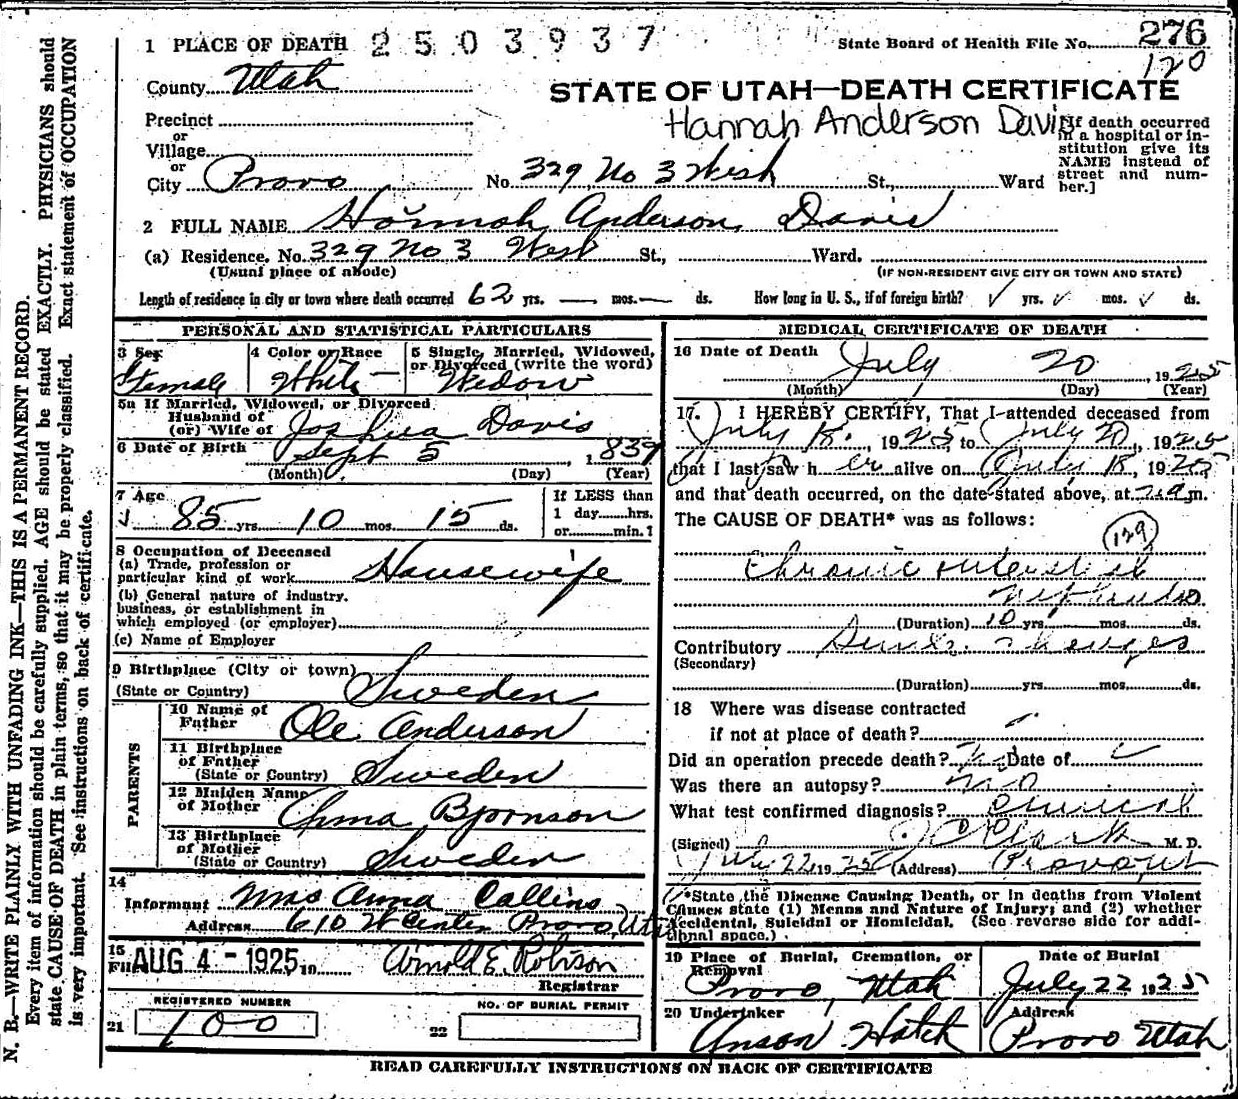 1 PLACE OF DEATH 2503937
State Board of Health File No. 276
120
County Utah
STATE OF UTAH—DEATH CERTIFICATE
Hannah Anderson Davis
Precinct
or
Village
or
City Provo No. 329 No 3 West St., Ward
[If death occurred
in a hospital or in-
stitution give its
NAME instead of
street and num-
ber.]
2 FULL NAME Hannah Anderson Davis
(a) Residence. No. 329 No 3 West St., Ward.
(Usual place of abode)
(IF NON-RESIDENT GIVE CITY OR TOWN AND STATE)
Length of residence in city or town where death occurred 62 yrs. — mos. — ds. How long in U. S., if of foreign birth? ✓ yrs. ✓ mos. ✓ ds.
PERSONAL AND STATISTICAL PARTICULARS
3 Sex
Female
4 Color or Race
White
5 Single, Married, Widowed,
or Divorced (write the word)
Widow
5a If Married, Widowed, or Divorced
Husband of
(or) Wife of Joshua Davis
6 Date of Birth Sept 5, 1839
(Month) (Day) (Year)
7 Age
85 yrs. 10 mos. 15 ds.
If LESS than
1 day......hrs.
or.........min.?
8 Occupation of Deceased
(a) Trade, profession or
particular kind of work Housewife
(b) General nature of industry.
business, or establishment in
which employed (or employer)
(c) Name of Employer
9 Birthplace (City or town)
(State or Country) Sweden
PARENTS
10 Name of
Father Ole Anderson
11 Birthplace
of Father
(State or Country) Sweden
12 Maiden Name
of Mother Anna Bjornson
13 Birthplace
of Mother
(State or Country) Sweden
14
Informant Mrs Anna Collins
Address 610 W Center Provo, Utah
15
Filed AUG 4 - 1925 19 Arnold E. Robison
Registrar
REGISTERED NUMBER
21 100
NO. OF BURIAL PERMIT
22
MEDICAL CERTIFICATE OF DEATH
16 Date of Death July 20, 1925
(Month) (Day) (Year)
17. I HEREBY CERTIFY, That I attended deceased from
July 18, 1925 to July 20, 1925
that I last saw her alive on July 18, 1925
and that death occurred, on the date stated above, at m.
The CAUSE OF DEATH* was as follows:
129
Chronic interstitial
nephritis
(Duration) 10 yrs. mos. ds.
Contributory Senile changes
(Secondary)
(Duration) yrs. mos. ds.
18 Where was disease contracted
if not at place of death?
Did an operation precede death? No Date of
Was there an autopsy? no
What test confirmed diagnosis? Clinical
(Signed) Clark M. D.
July 22 1925 (Address) Provo Ut
*State the Disease Causing Death, or in deaths from Violent
Causes state (1) Means and Nature of Injury; and (2) whether
Accidental, Suicidal or Homicidal. (See reverse side for addi-
tional space.)
19 Place of Burial, Cremation, or
Removal
Provo, Utah
Date of Burial
July 22 1925
20 Undertaker
Anson Hatch
Address
Provo Utah
READ CAREFULLY INSTRUCTIONS ON BACK OF CERTIFICATE
N. B.—WRITE PLAINLY WITH UNFADING INK—THIS IS A PERMANENT RECORD.
Every item of information should be carefully supplied. AGE should be stated EXACTLY. PHYSICIANS should
state CAUSE OF DEATH in plain terms, so that it may be properly classified. Exact statement of OCCUPATION
is very important. See instructions on back of certificate.